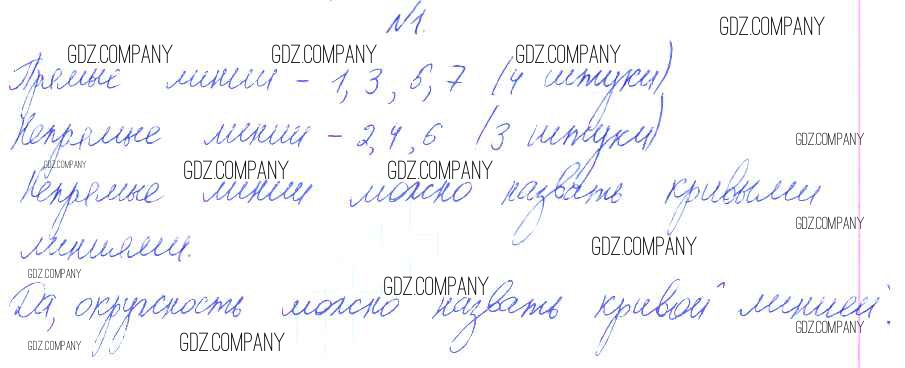 №1.
GDZ.COMPANY
GDZ.COMPANY GDZ.COMPANY GDZ.COMPANY
Прямые линии - 1, 3, 5, 7 (4 штуки)
Непрямые линии - 2, 4, 6 (3 штуки)
GDZ.COMPANY
GDZ.COMPANY GDZ.COMPANY GDZ.COMPANY
Непрямые линии можно назвать кривыми
GDZ.COMPANY
линиями.
GDZ.COMPANY
GDZ.COMPANY GDZ.COMPANY
Да, окружность можно назвать кривой линией.
GDZ.COMPANY
GDZ.COMPANY GDZ.COMPANY